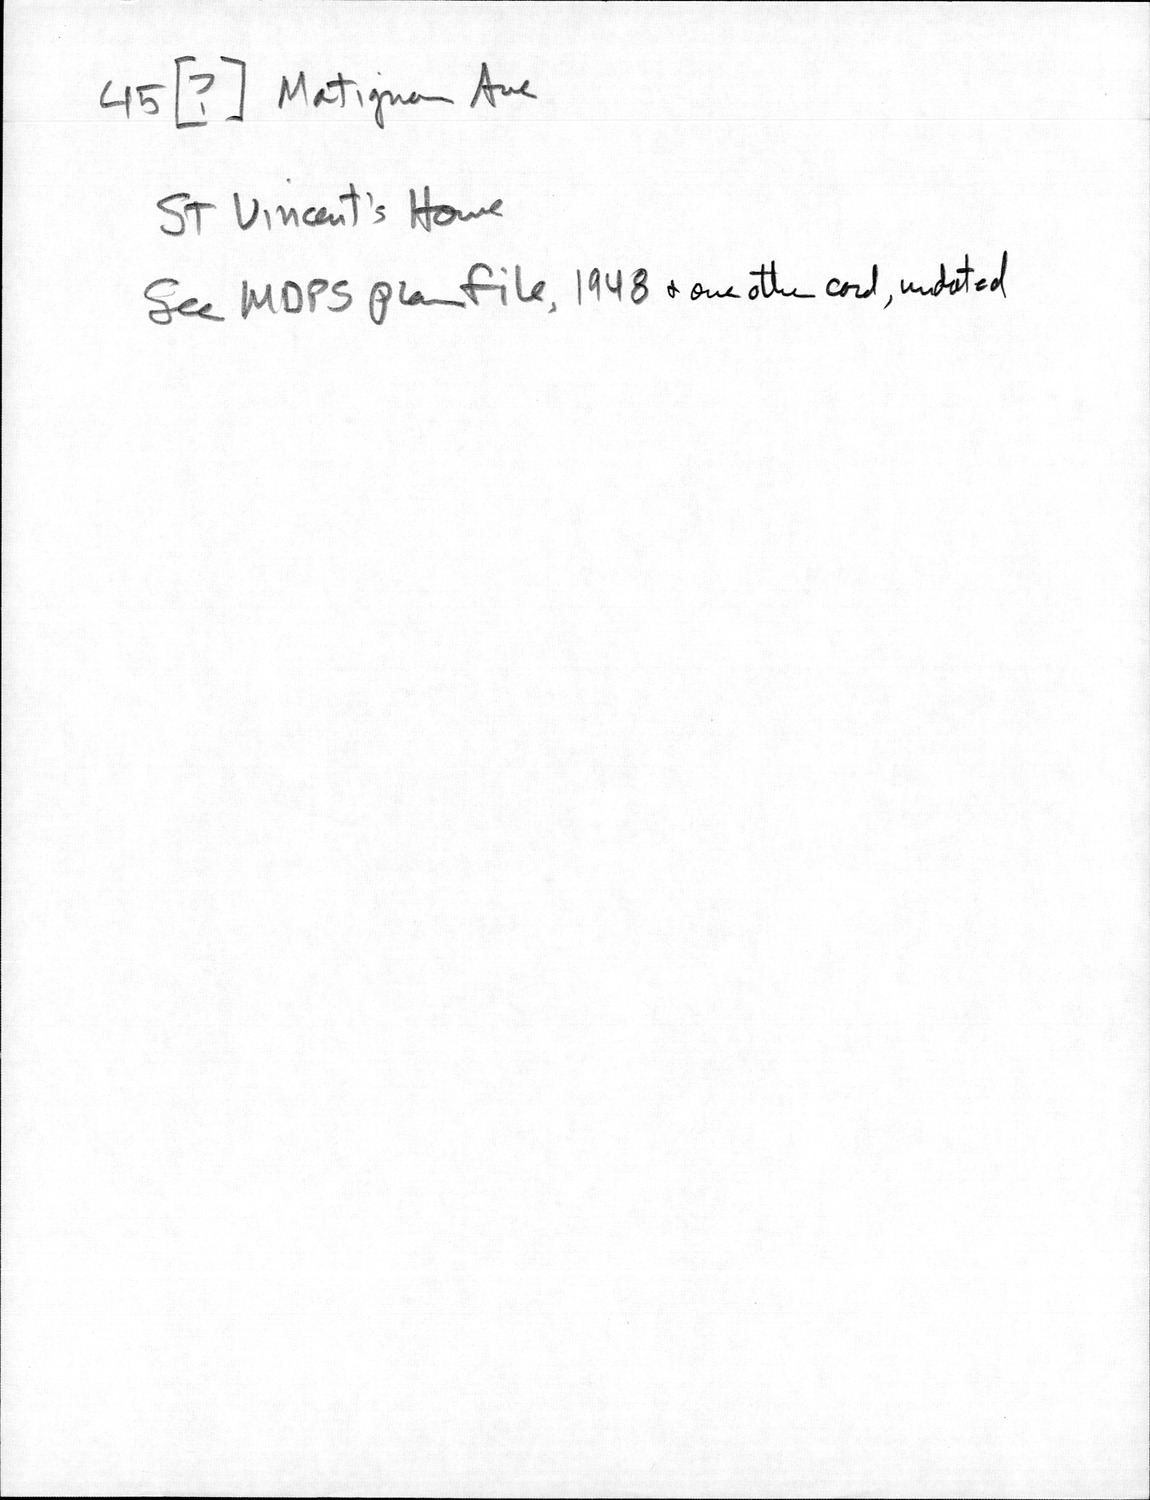 45 [?] Matignon Ave
ST Vincent's Home
See MDPS plan file, 1948 & one other card, undated